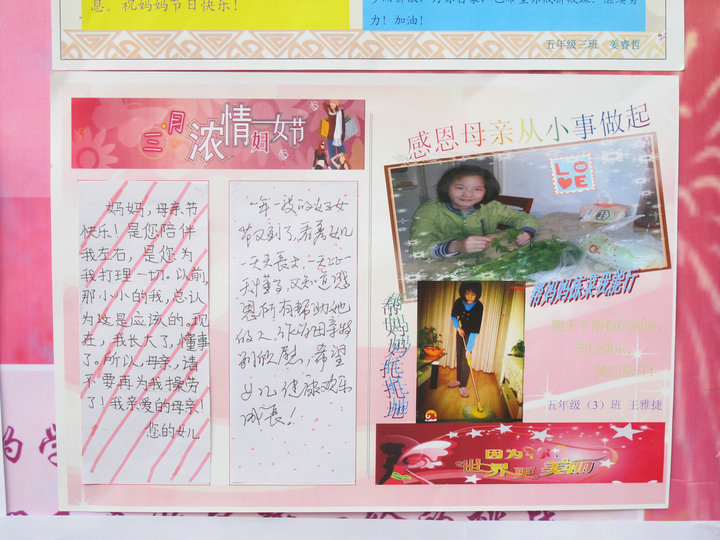 息。祝妈妈节日快乐!
力!加油!
五年级三班 姜睿哲
三月
浓情妇女节
感恩母亲从小事做起
LOVE
妈妈,母亲节
快乐!是您陪伴
我左右,是您为
我打理一切。以前,
那小小的我,总认
为这是应该的。现
在,我长大了,懂事
了。所以,母亲,请
不要再为我操劳
了!我亲爱的母亲!
您的女儿
一年一度的妇女
节又到了,看着女儿
一天天長大,一天比一
天懂事了,又知道感
恩所有帮助她
的人,作为母亲特
别欣慰,希望
女儿健康快乐
成長!
帮妈妈摘菜我能行
帮妈妈拖拖地
愿天下所有的母亲,
节日快乐,
笑口常开!
五年级(3)班 王雅捷
因为
世界更美丽